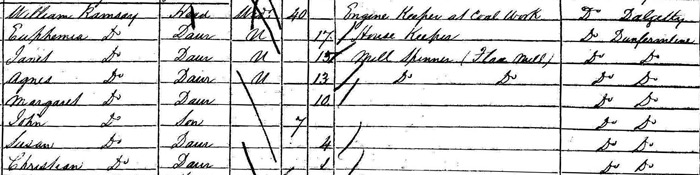 William Ramsay Head 40 Engine Keeper at Coal Work Do Dalgetty
Euphemia Do Daur U 17 House Keeper Do Dunfermline
Janet Do Daur U 15 Mill Spinner (Flax Mill) Do Do
Agnes Do Daur U 13 Do Do Do Do
Margaret Do Daur 10 Do Do
John Do Son 7 Do Do
Susan Do Daur 4 Do Do
Christian Do Daur 1 Do Do